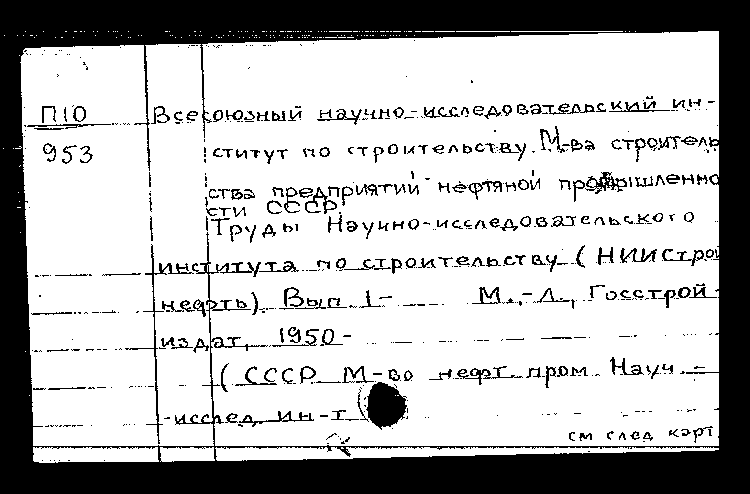 П10 Всесоюзный научно-исследовательский ин-
953 ститут по строительству М-ва строитель
ства предприятий нефтяной промышленно
сти СССР.
Труды Научно-исследовательского
института по строительству (НИИСтрой
нефть). Вып. 1- М.,-Л., Госстрой-
издат, 1950-
(СССР М-во нефт. пром. Науч.-
-исслед. ин-т
см след карт.